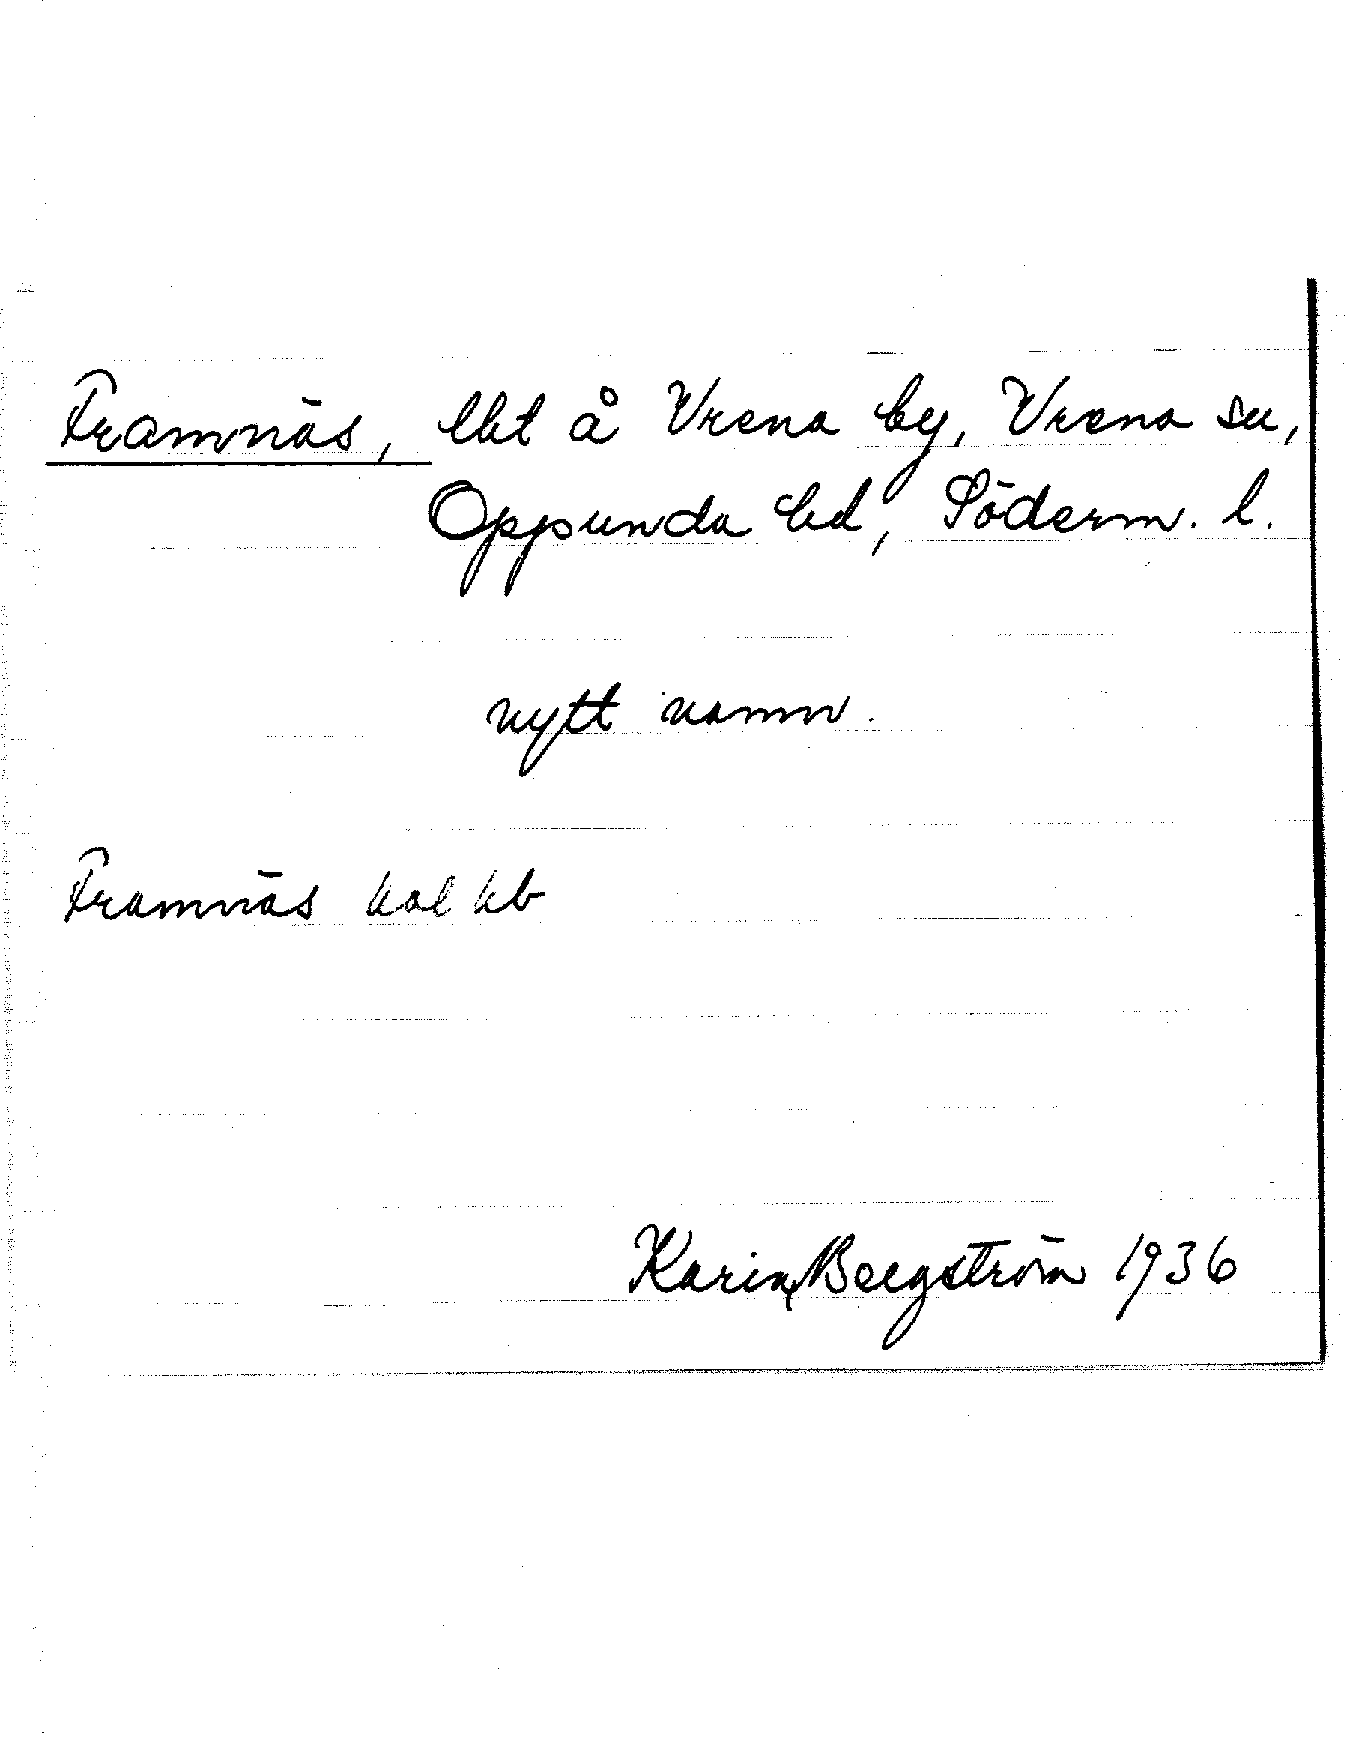 Framnäs, lht å Vrena by, Vrena sn,
Oppunda hd, Söderm. l.
nytt namn.
Framnäs hal hb
Karin Bergström 1936